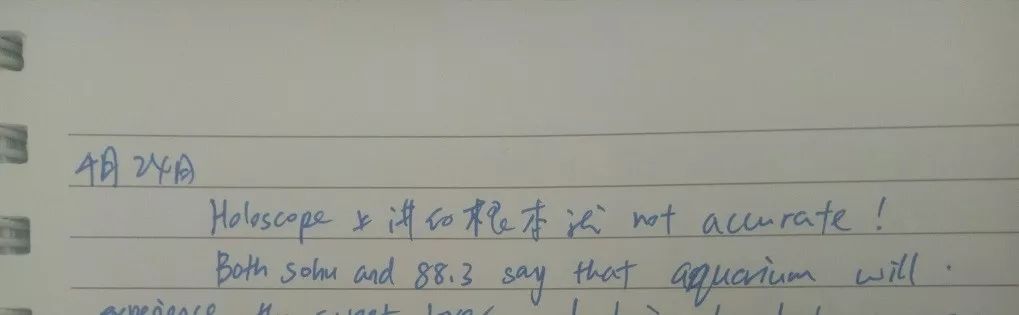 4月24日
Holoscope 上讲的根本没 not accurate!
Both sohu and 88.3 say that aquarium will
experience the sweet